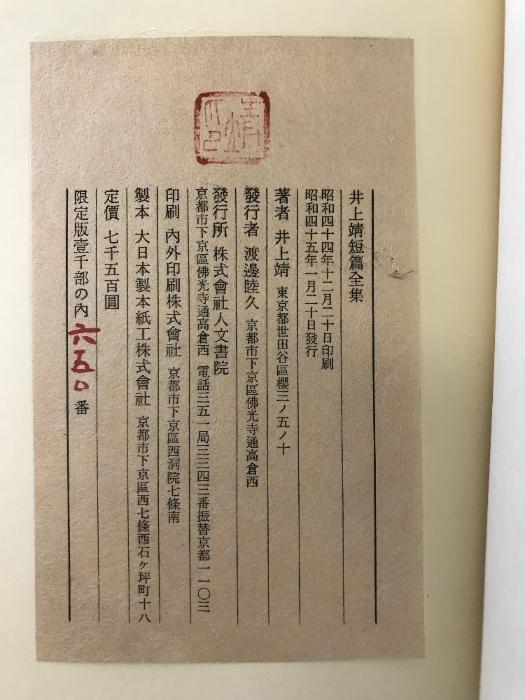 井上靖短篇全集
昭和四十四年十二月二十日印刷
昭和四十五年一月二十日發行
著者 井上靖 東京都世田谷區櫻三ノ五ノ十
發行者 渡邊睦久 京都市下京區佛光寺通高倉西
發行所 株式會社人文書院
京都市下京區佛光寺通高倉西 電話三五一局三三四三番振替京都一一〇三
印刷 內外印刷株式會社 京都市下京區西洞院七條南
製本 大日本製本紙工株式會社 京都市下京區西七條西石ヶ坪町十八
定價 七千五百圓
限定版壹千部の內 六五〇 番